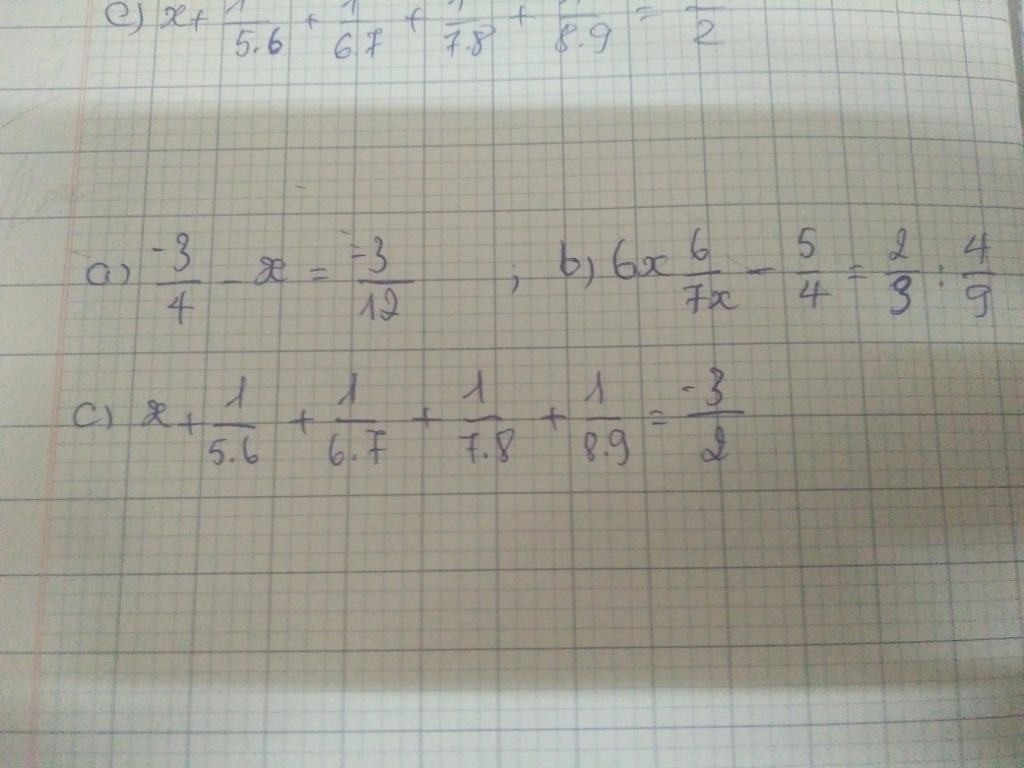 c) x + 1/5.6 + 1/6.7 + 1/7.8 + 1/8.9 = /2
a) -3/4 - x = -3/12 ; b) 6x 6/7x - 5/4 = 2/3 : 4/9
c) x + 1/5.6 + 1/6.7 + 1/7.8 + 1/8.9 = -3/2